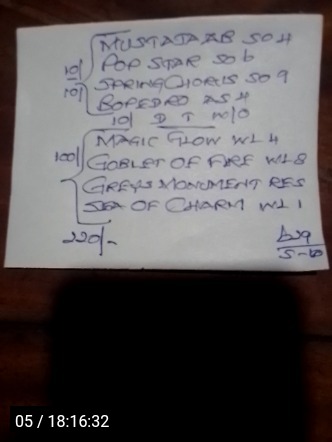 MUSTAJAAB SO 4
10/ POP STAR SO 6
10/ SPRING CHORUS SO 9
BOPEDRO AS 4
10/ D T W/O
MAGIC GLOW WL 4
100/ GOBLET OF FIRE WL 8
GREYS MONUMENT RES
SEA OF CHARM WL 1
220/-
5-10
05 / 18:16:32